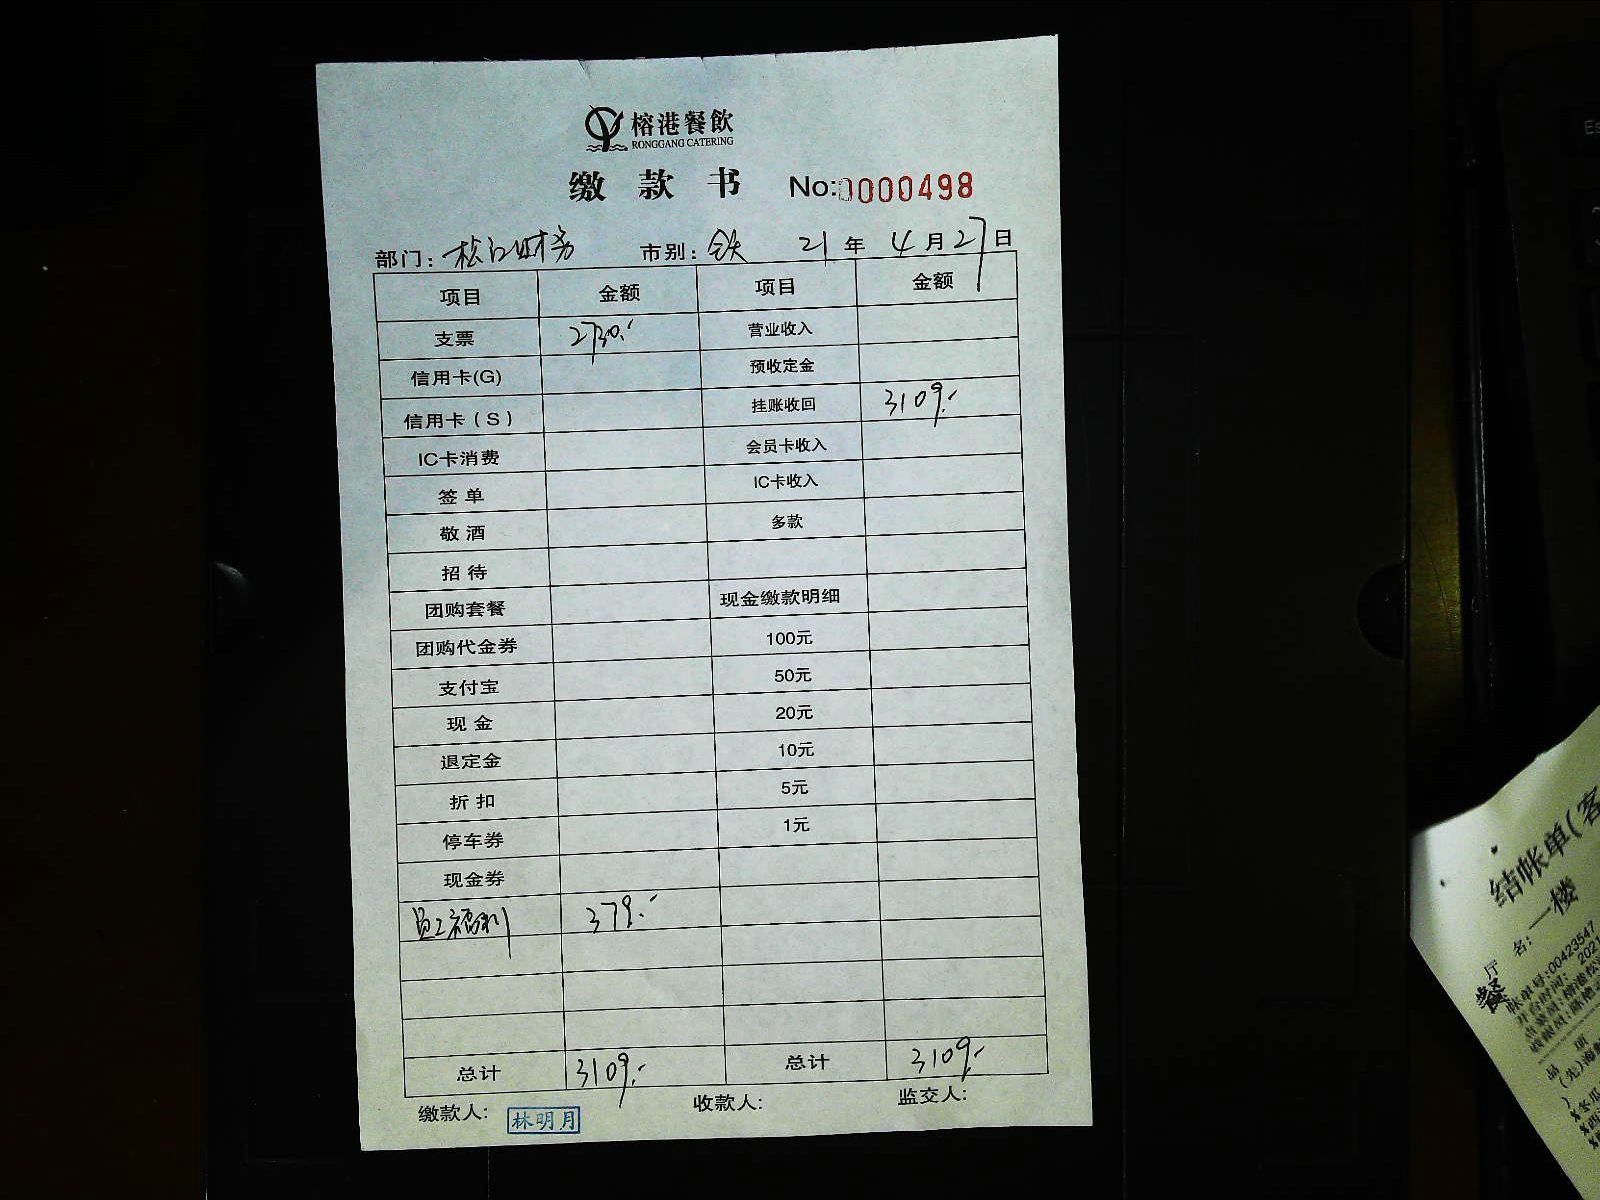 榕港餐飲
RONGGANG CATERING
缴款书 No:0000498
部门: 松江财务 市别: 21年4月27日
项目 金额 项目 金额
支票 2730.- 营业收入
信用卡(G) 预收定金
信用卡(S) 挂账收回 3109.-
IC卡消费 会员卡收入
签单 IC卡收入
敬酒 多款
招待
团购套餐 现金缴款明细
团购代金券 100元
支付宝 50元
现金 20元
退定金 10元
折扣 5元
停车券 1元
现金券
员工福利 379.-
总计 3109.- 总计 3109.-
缴款人: 林明月 收款人: 监交人:
结帐单(客
餐厅名: 一楼
帐单号:00423547
2021